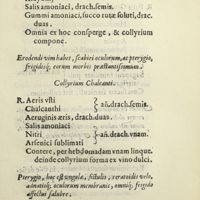 Salis amoniaci, drach. semis.
Gummi amoniaci, succo rutæ soluti, drac.
duas.
Omnia ex hoc consperge, & collyrium
compone.
Erodendi vim habet, scabiei oculorum, ac pterygio,
frigidisq; eorum morbis præstantissimum.
Collyrium Chalcant.
R. Aeris vsti
Chalcanthi } añ. drach. semis.
Aeruginis æris, drach. vnam.
Salis amoniaci
Nitri } añ. drach. vnam.
Arsenici sublimati
Contere, per hebdomadam vnam linque.
deinde collyrium forma ex vino dulci.
Pterygio, hoc est vngula, fistulis, ceratoidi velo,
adnatisq; oculorum membranis, omniq; frigido
affectui salubre.